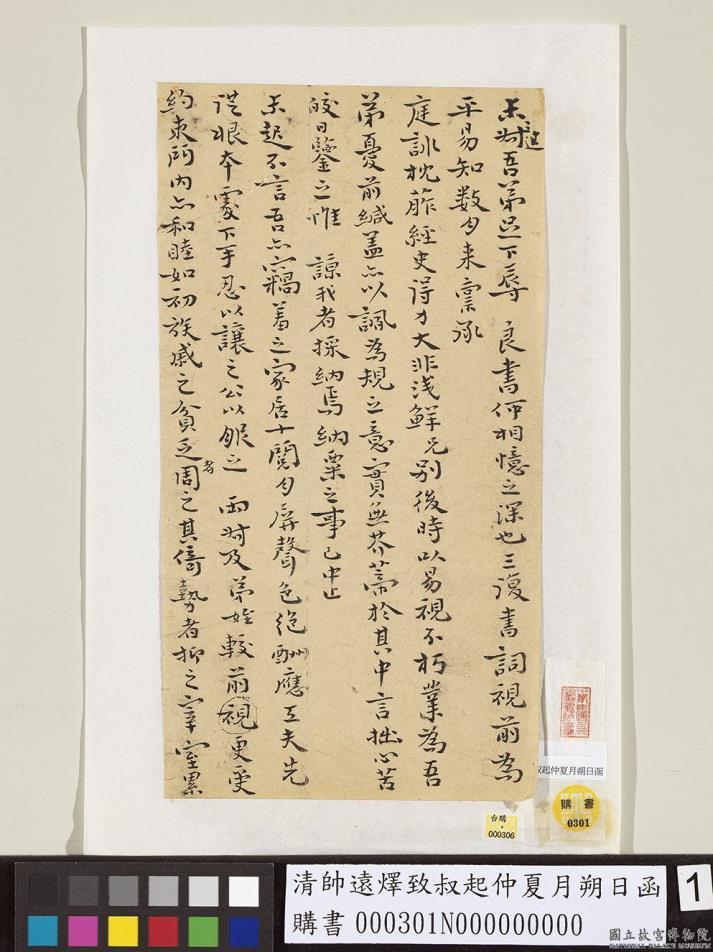 吾弟足下辱 良書仰相憶之深也三復書詞視前為
平易知数月来稟承
庭訓枕藉經史得力大非浅鮮兄别後時以易視不朽業為吾
弟憂前緘盖亦以諷為規之意實無芥蒂於其中言拙心苦
皎日鑒之惟 諒我者採納焉納粟之事已中止
起不言吾亦竊羞之家居十閱月屏聲色絕酬應工夫先
從根本處下手忍以讓之公以服之 及弟姪較前視更
約束所內亦和睦如初族戚之貧乏者周之其倚勢者抑之宰室累
叔起仲夏月朔日函
購書
0301
台購
000306
清帥遠燡致叔起仲夏月朔日函
購書 000301N000000000
1
國立故宮博物院
NATIONAL PALACE MUSEUM